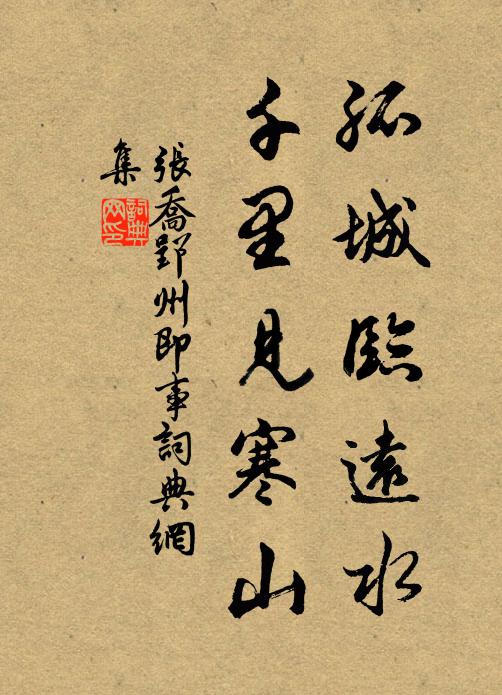 孤城臨遠水
千里見寒山
張喬郢州即事詞典網
集
詞典
网印